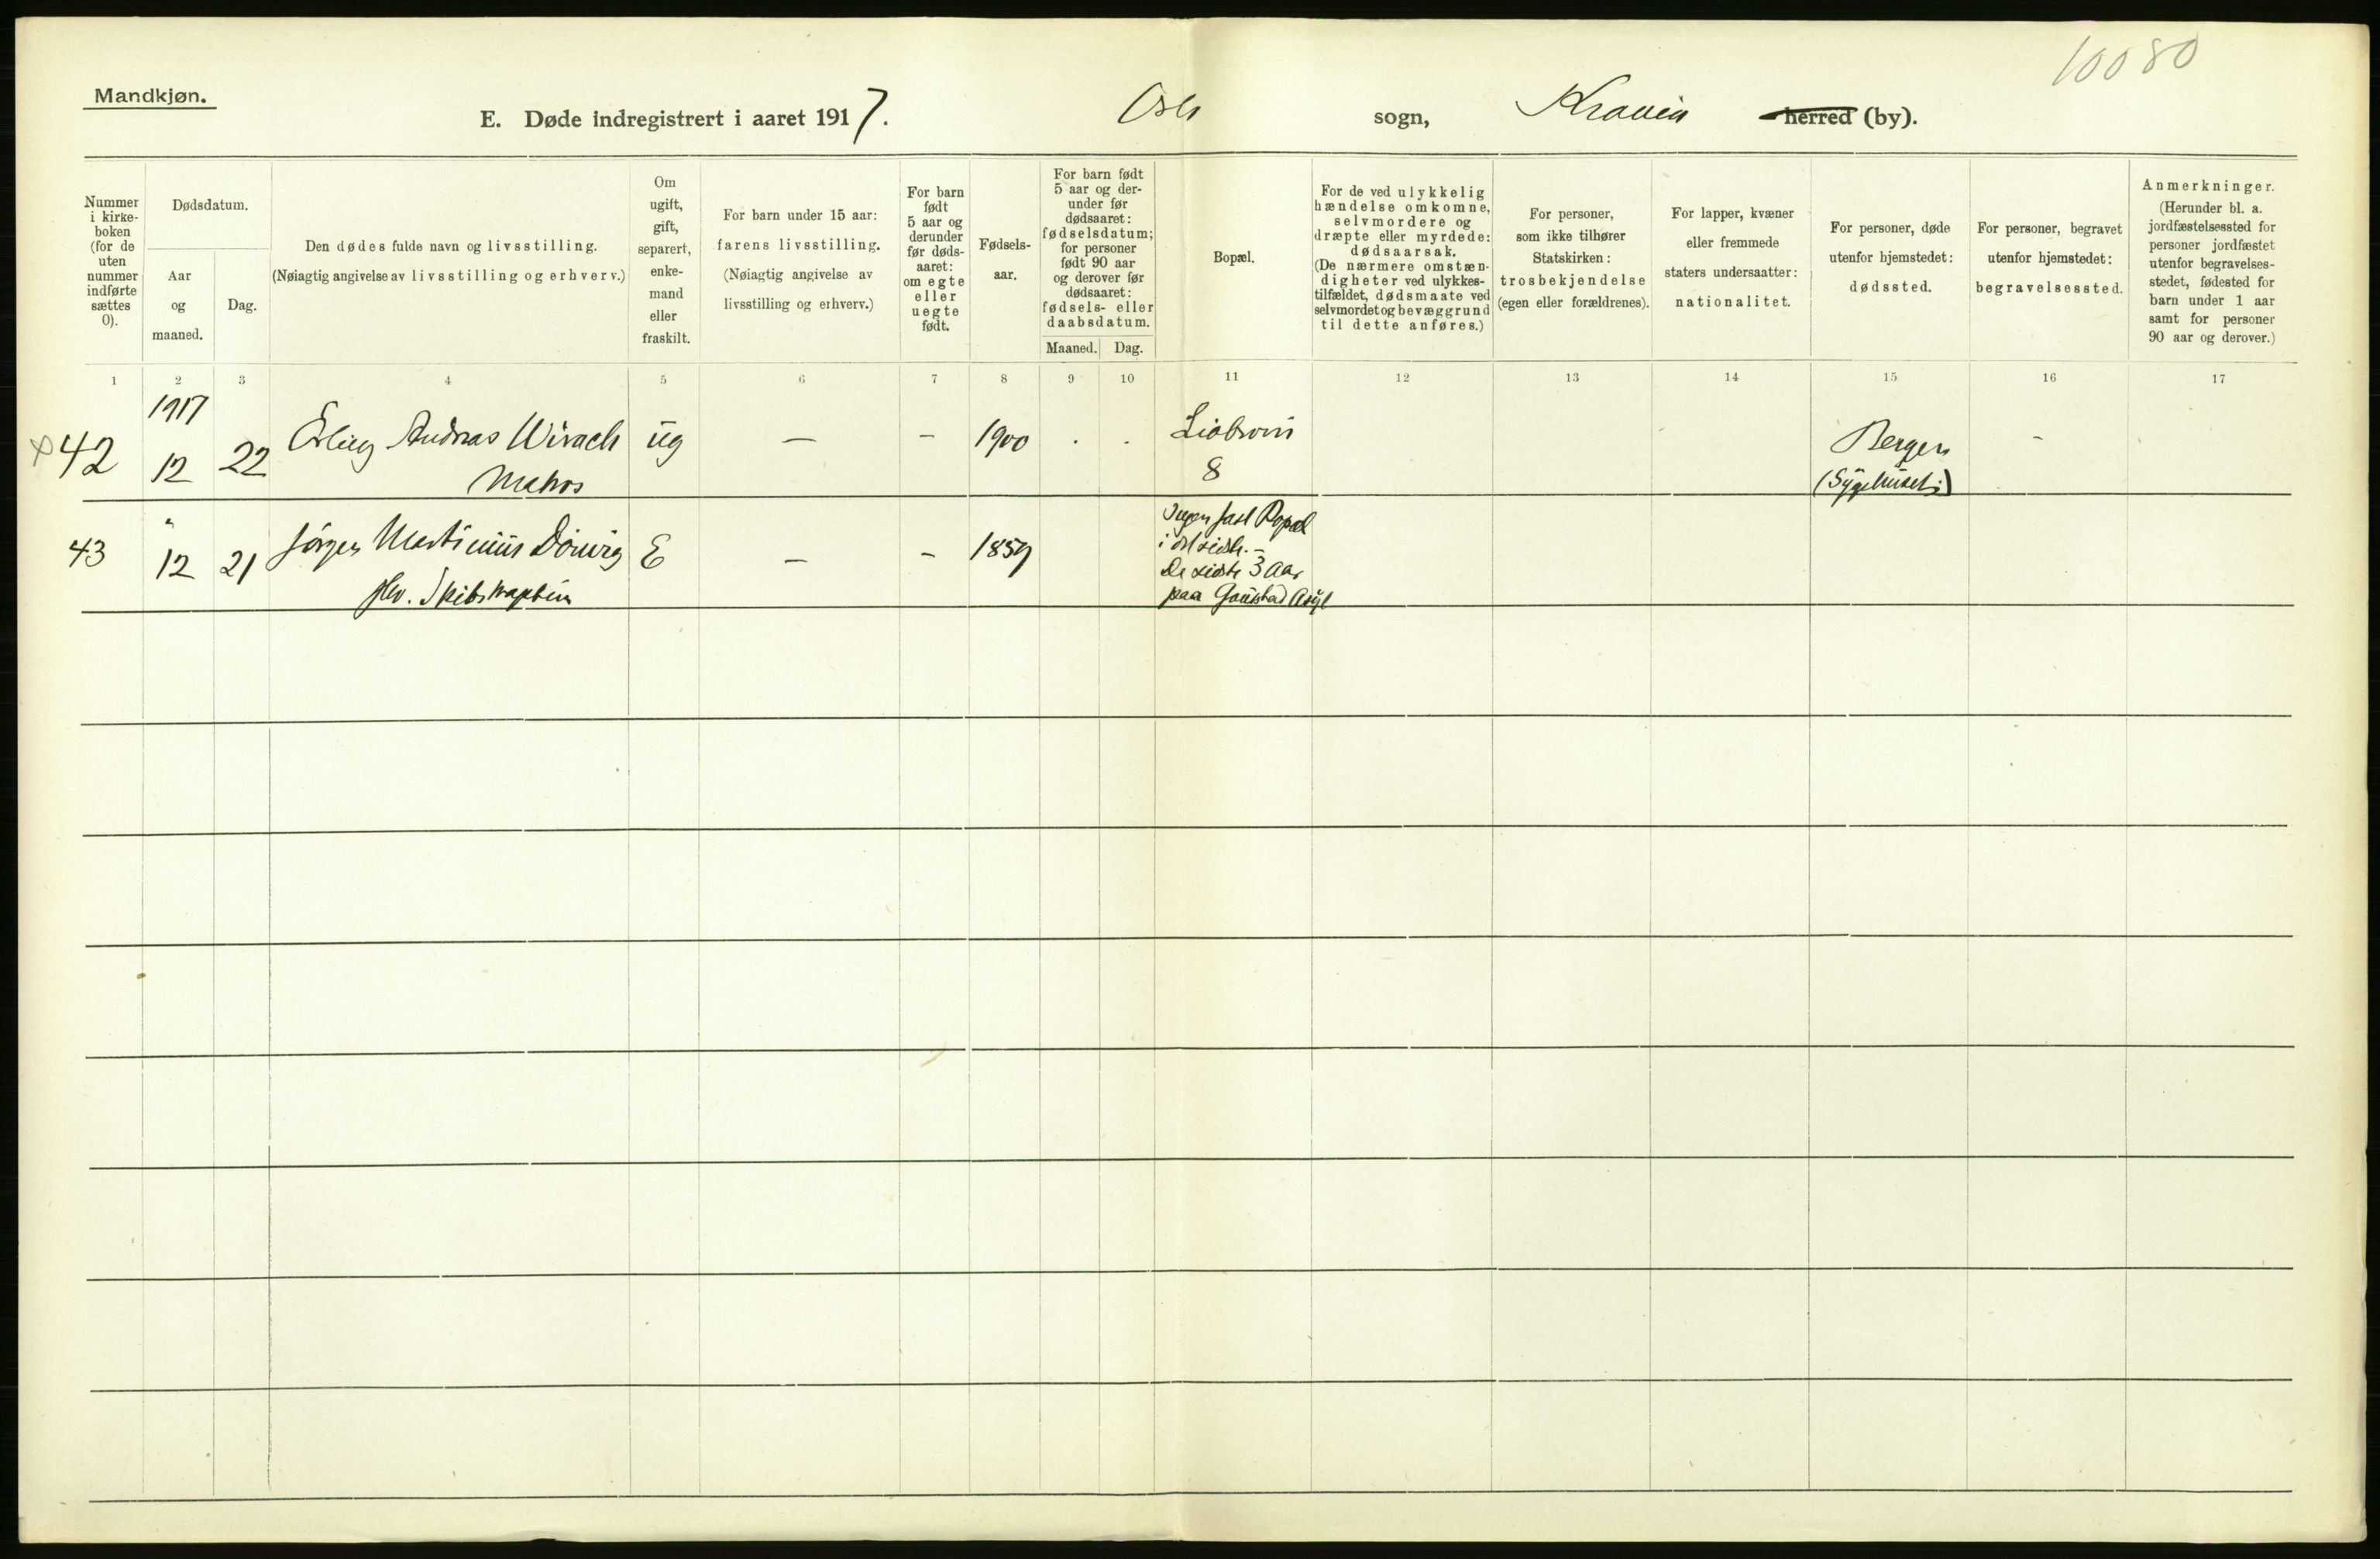 10080
Mandkjøn.
E. Døde indregistrert i aaret 1917. Oslo sogn, herred (by).
Nummer i kirke-boken (for de uten nummer indførte sættes 0).
Dødsdatum.
Aar og maaned.
Dag.
Den dødes fulde navn og livsstilling.
(Nøiagtig angivelse av livsstilling og erhverv.)
Om ugift, gift, separert, enke-mand eller fraskilt.
For barn under 15 aar: farens livsstilling.
(Nøiagtig angivelse av livsstilling og erhverv.)
For barn født 5 aar og derunder før døds-aaret: om egte eller uegte født.
Fødsels-aar.
For barn født 5 aar og der-under før dødsaaret: fødselsdatum; for personer født 90 aar og derover før dødsaaret: fødsels- eller daabsdatum.
Maaned. Dag.
Bopæl.
For de ved ulykkelig hændelse omkomne, selvmordere og dræpte eller myrdede: dødsaarsak.
(De nærmere omstæn-digheter ved ulykkes-tilfældet, dødsmaate ved selvmordet og bevæggrund til dette anføres.)
For personer, som ikke tilhører Statskirken: trosbekjendelse (egen eller forældrenes).
For lapper, kvæner eller fremmede staters undersaatter: nationalitet.
For personer, døde utenfor hjemstedet: dødssted.
For personer, begravet utenfor hjemstedet: begravelsessted.
Anmerkninger.
(Herunder bl. a. jordfæstelsessted for personer jordfæstet utenfor begravelses-stedet, fødested for barn under 1 aar samt for personer 90 aar og derover.)
1 2 3 4 5 6 7 8 9 10 11 12 13 14 15 16 17
1917
42 12 22 Erling Andreas ug — - 1900 . . 8 Bergen -
Matros (Sygehuset)
43 " 12 21 Jørgen Martinius E — - 1859
fhv. Skibskaptein
Ingen fast Bopæl
i det sidste. -
De sidste 3 Aar
paa Gaustad Asyl